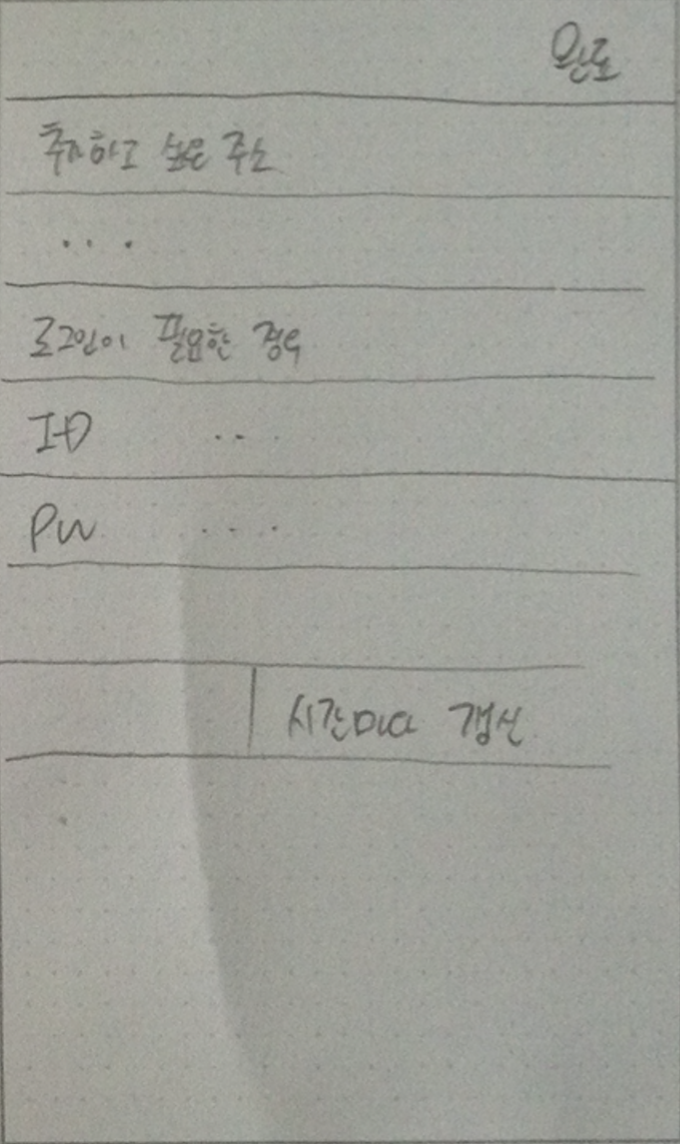 완료
추가하고 싶은 주소
...
로그인이 필요한 경우
ID ...
PW ....
시간마다 갱신